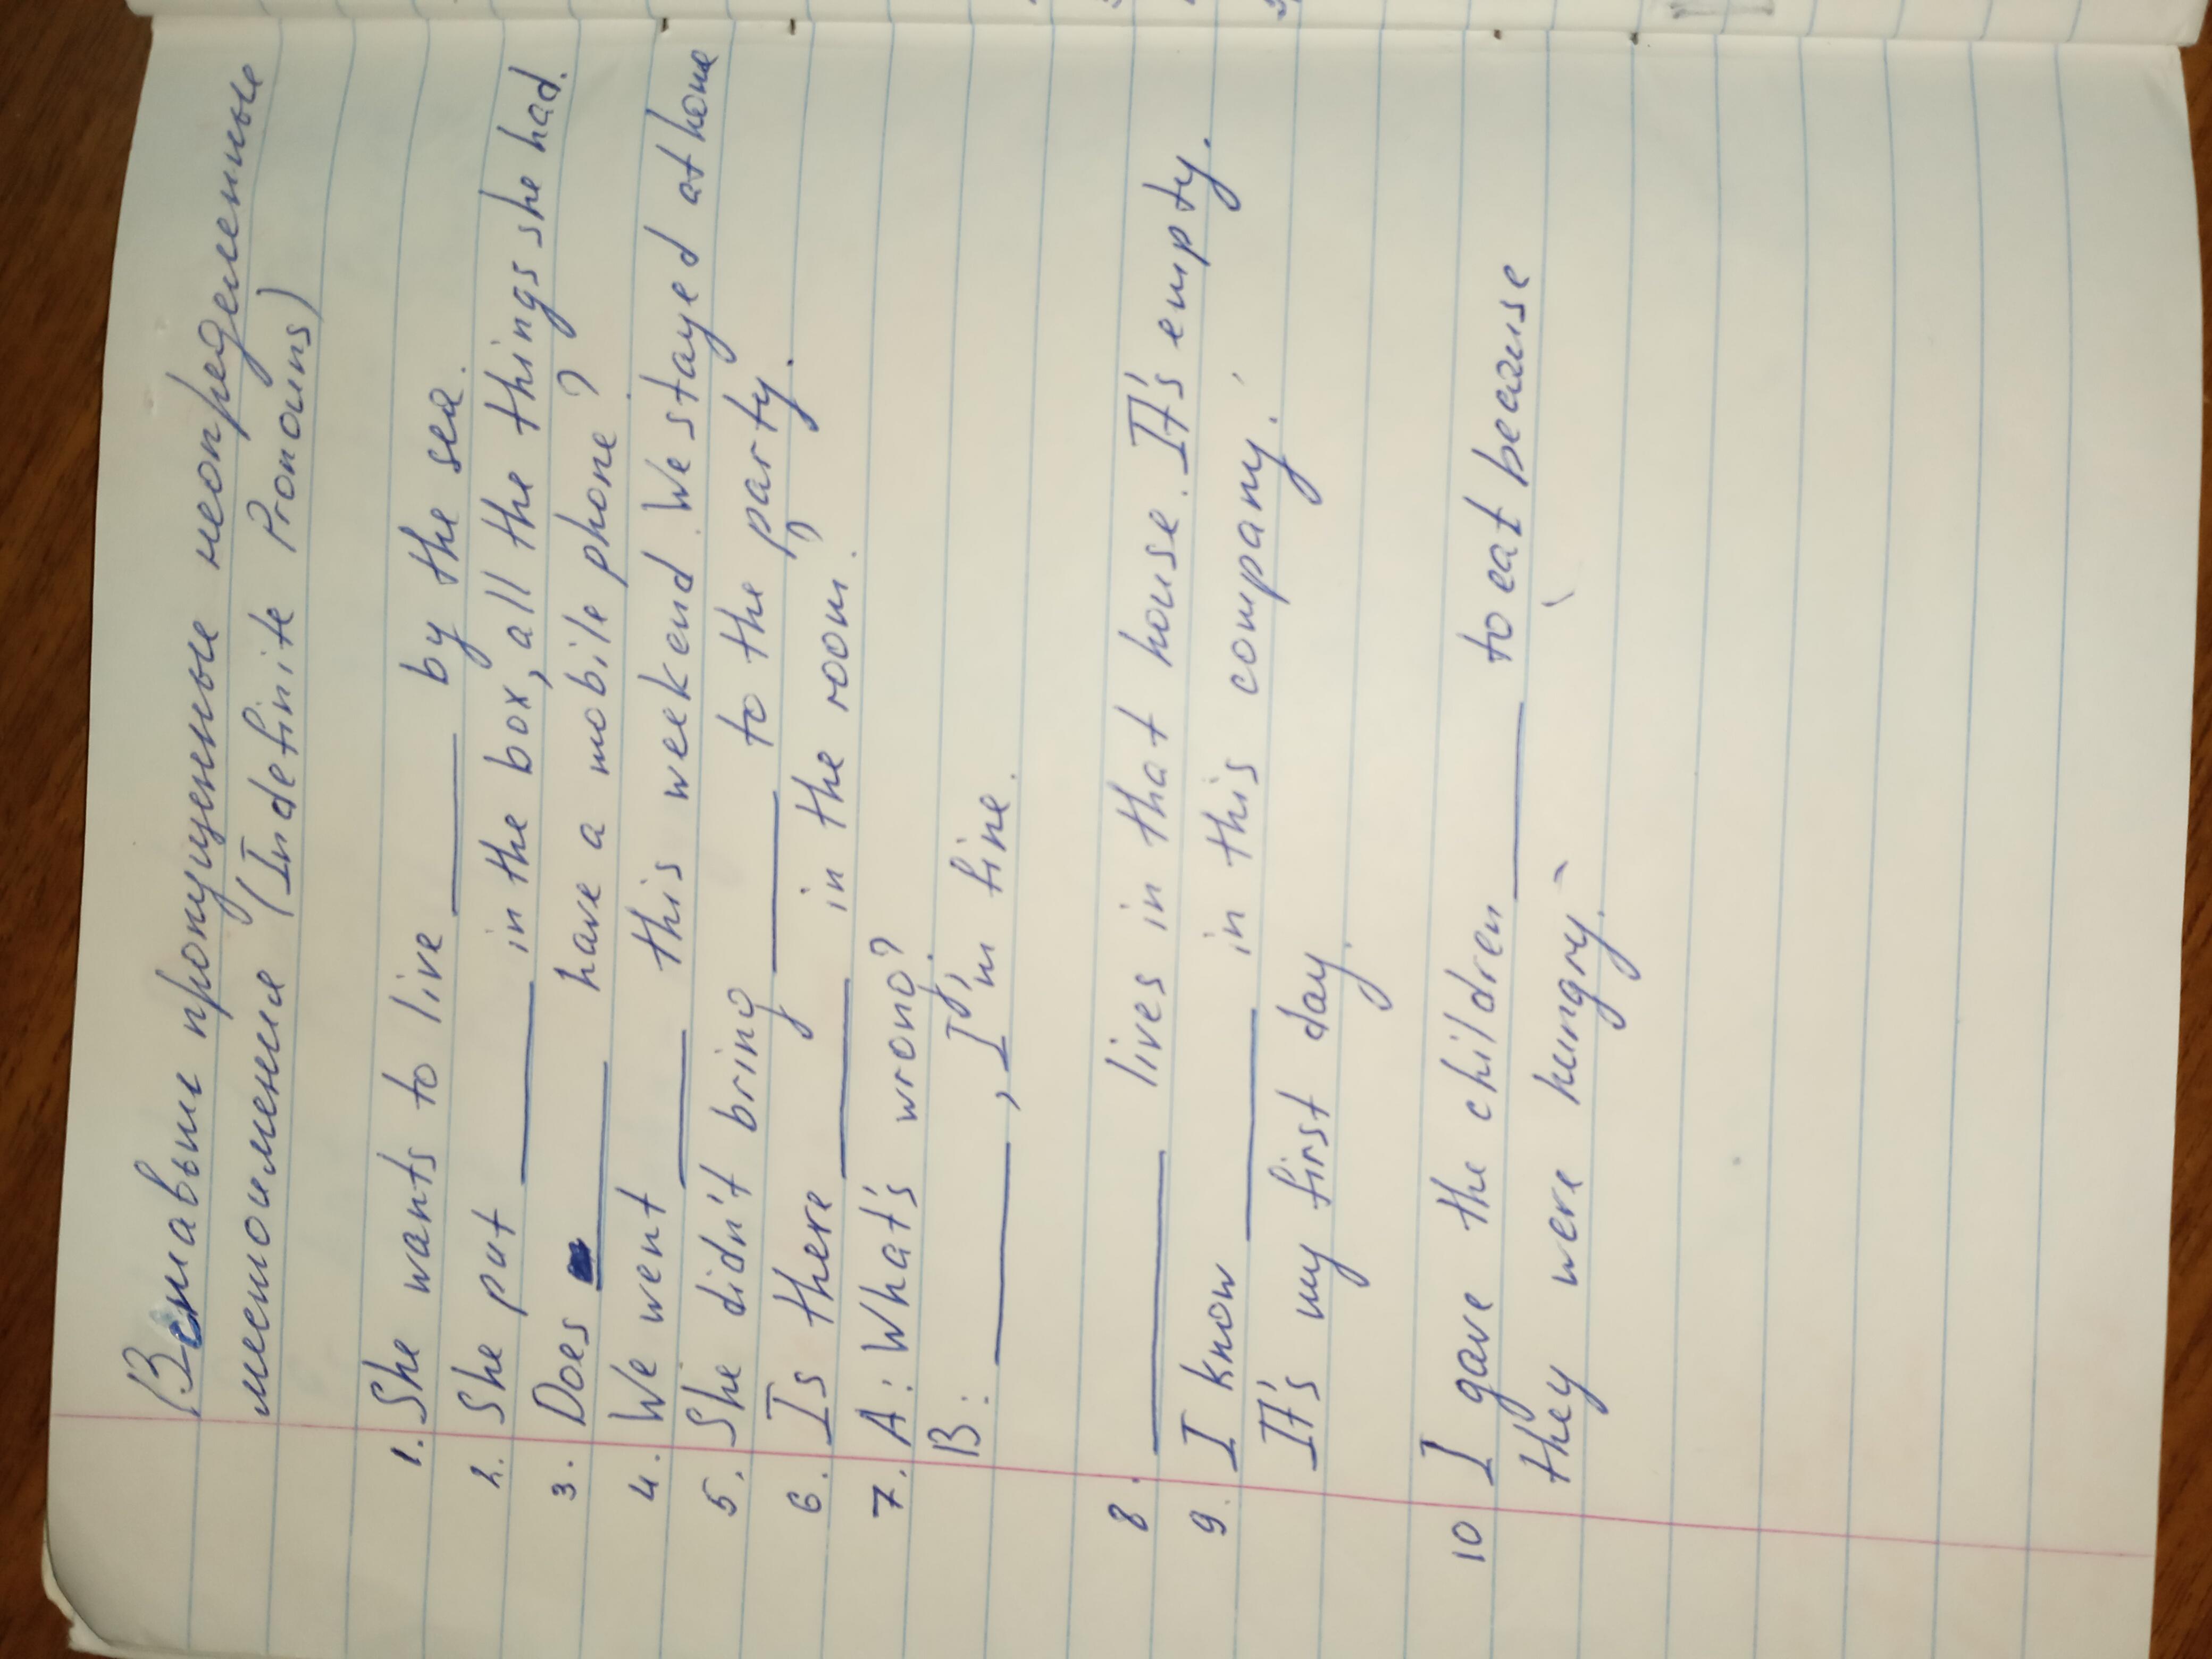 Вставьти пропущенные неопределенные
местоимения (Indefinite Pronouns)
1. She wants to live ____ by the sea.
2. She put ____ in the box, all the things she had.
3. Does ____ have a mobile phone?
4. We went ____ this weekend. We stayed at home
5. She didn't bring ____ to the party.
6. Is there ____ in the room?
7. A: What's wrong?
B: ____, I'm fine.
8. ____ lives in that house. It's empty.
9. I know ____ in this company.
It's my first day.
10 I gave the children ____ to eat because
they were hungry.